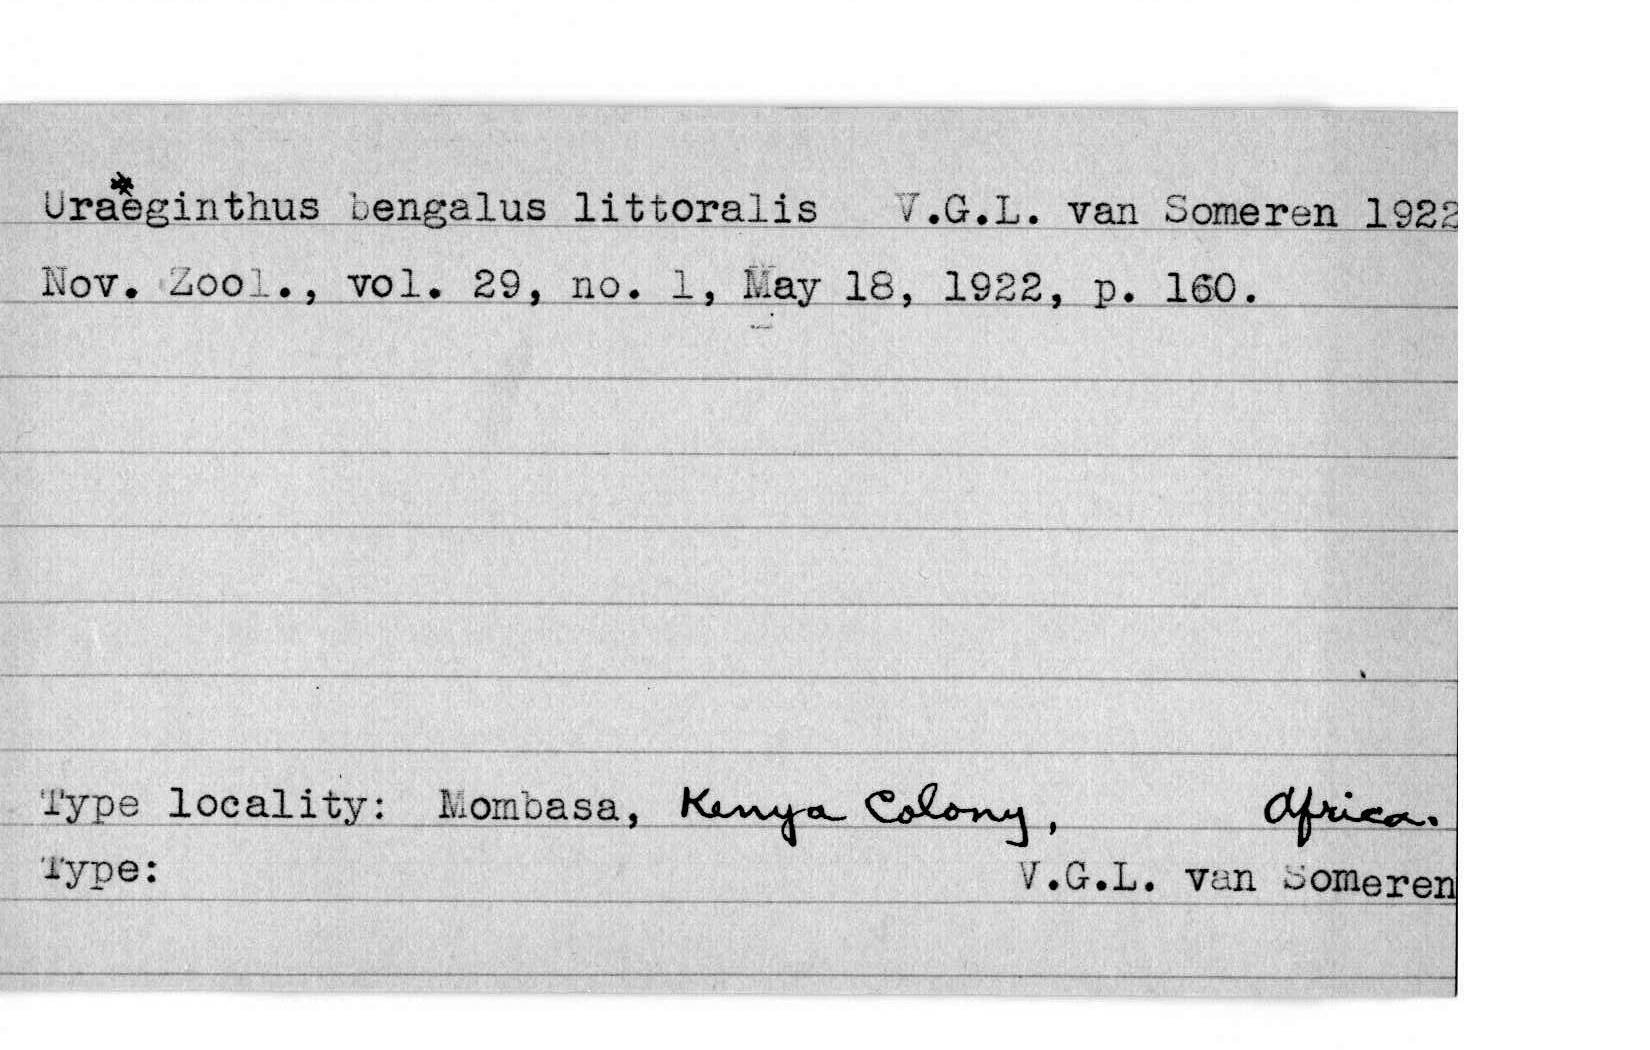 Uraeginthus bengalus littoralis V.G.L. van Someren 1922
Nov. Zool., vol. 29, no. 1, May 18, 1922, p. 160.
Type locality: Mombasa, Kenya Colony, Africa.
Type: V.G.L. van Someren